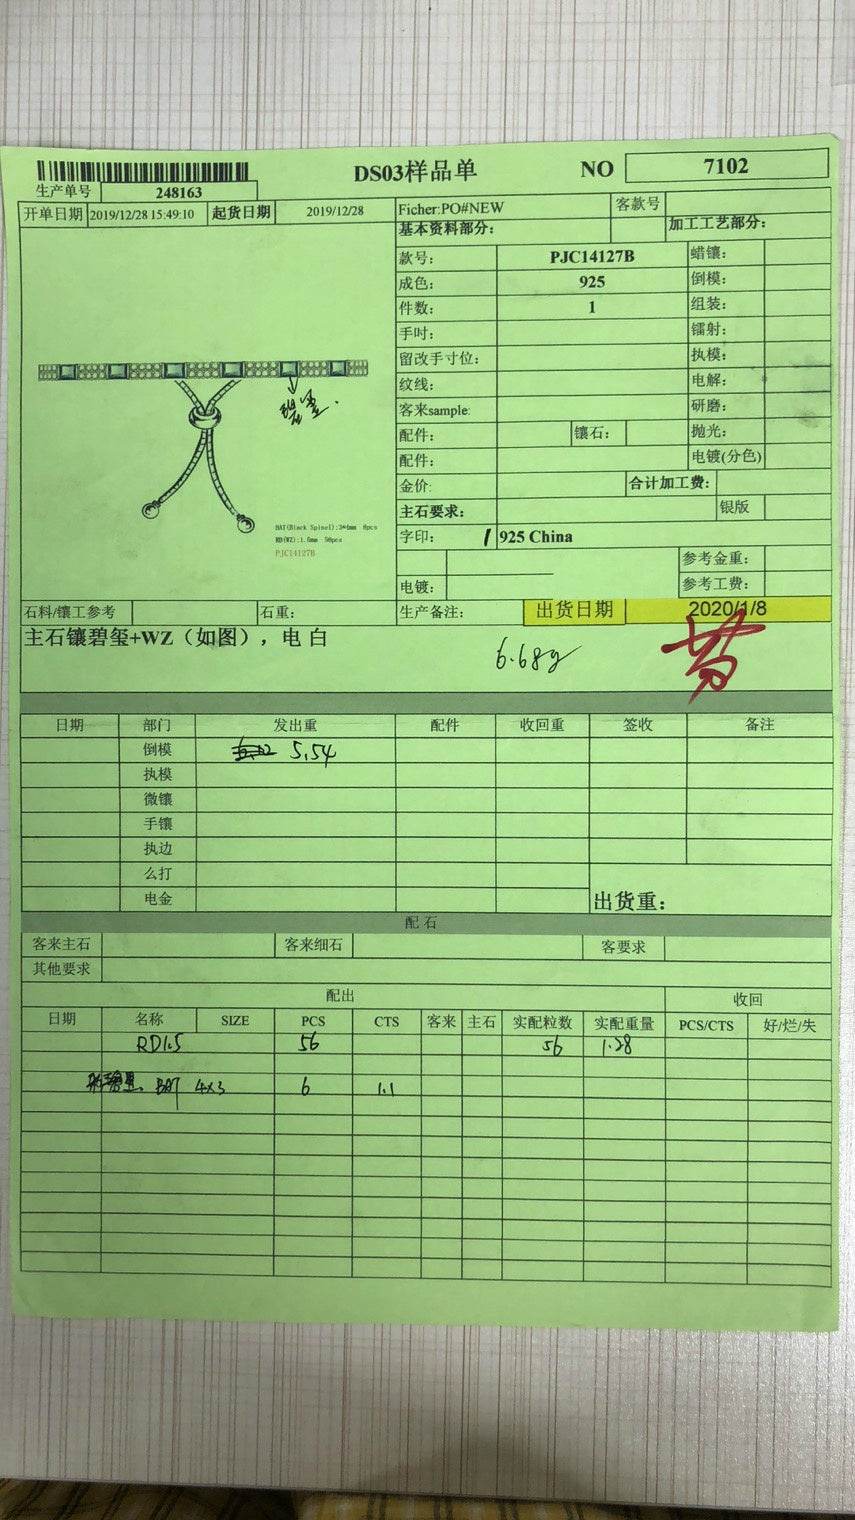 DS03样品单 NO 7102
生产单号 248163
开单日期 2019/12/28 15:49:10 起货日期 2019/12/28 Ficher:PO#NEW 客款号
基本资料部分： 加工工艺部分：
款号： PJC14127B 蜡镶：
成色： 925 倒模：
件数： 1 组装：
手吋： 镭射：
留改手寸位： 执模：
纹线： 电解：
客来sample: 研磨：
配件： 镶石： 抛光：
配件： 电镀(分色)
金价: 合计加工费：
主石要求： 银版
字印： 925 China
参考金重：
电镀： 参考工费：
碧玺
BAT(Black Spinel):3*4mm 6pcs
RD(WZ):1.5mm 56pcs
PJC14127B
石料/镶工参考 石重： 生产备注： 出货日期 2020/1/8
主石镶碧玺+WZ（如图），电 白
6.68g
日期 部门 发出重 配件 收回重 签收 备注
倒模 5.54
执模
微镶
手镶
执边
么打
电金
出货重：
配 石
客来主石 客来细石 客要求
其他要求
配出 收回
日期 名称 SIZE PCS CTS 客来 主石 实配粒数 实配重量 PCS/CTS 好/烂/失
RD1.5 56 56 1.28
BAT 4x3 6 1.1